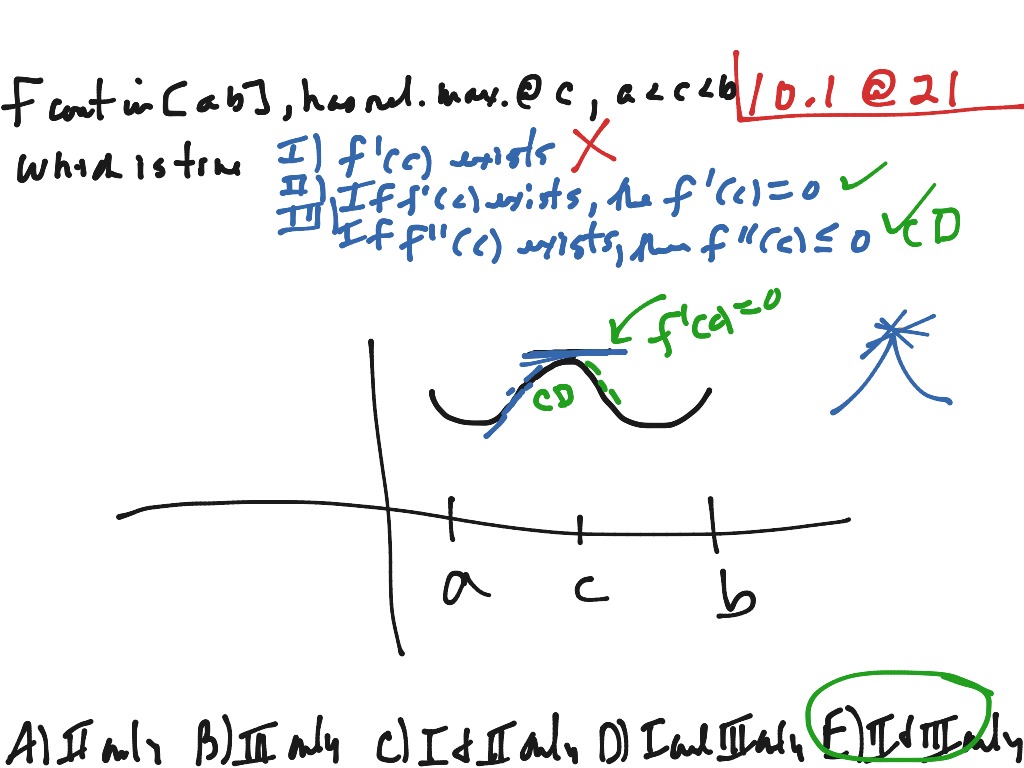 f cont in [a b], has rel. max. @ c, a < c < b
10.1 @ 21
which is true
I) f'(c) exists
II) If f'(c) exists, the f'(c) = 0
III) If f''(c) exists, then f''(c) ≤ 0
CD
f'(c) = 0
CD
a c b
A) II only B) III only C) I & II only D) I and III only E) II & III only